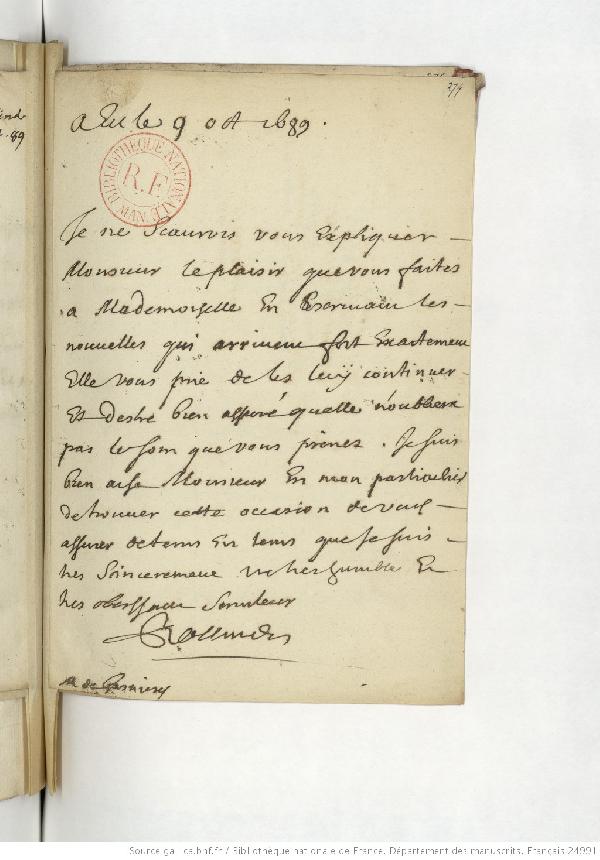 271
a Eu le 9 oct 1689.
BIBLIOTHEQUE NATIONALE
R.F
MAN.
Je ne scaurois vous Expliquer
Monsieur le plaisir que vous faites
a Mademoiselle En Escrivant les
nouvelles qui arrivent fort Exactement
Elle vous prie de les luy continuer
Et destre bien assuré quelle n'oubliera
pas le soin que vous prenez. Je suis
bien aise Monsieur En mon particulier
de trouver cette occasion de vous
assurer de tems En tems que Je suis
tres Sincerement vtre tres humble Et
tres obeissant Serviteur
M de
Source gallica.bnf.fr / Bibliothèque nationale de France. Département des manuscrits. Français 24991